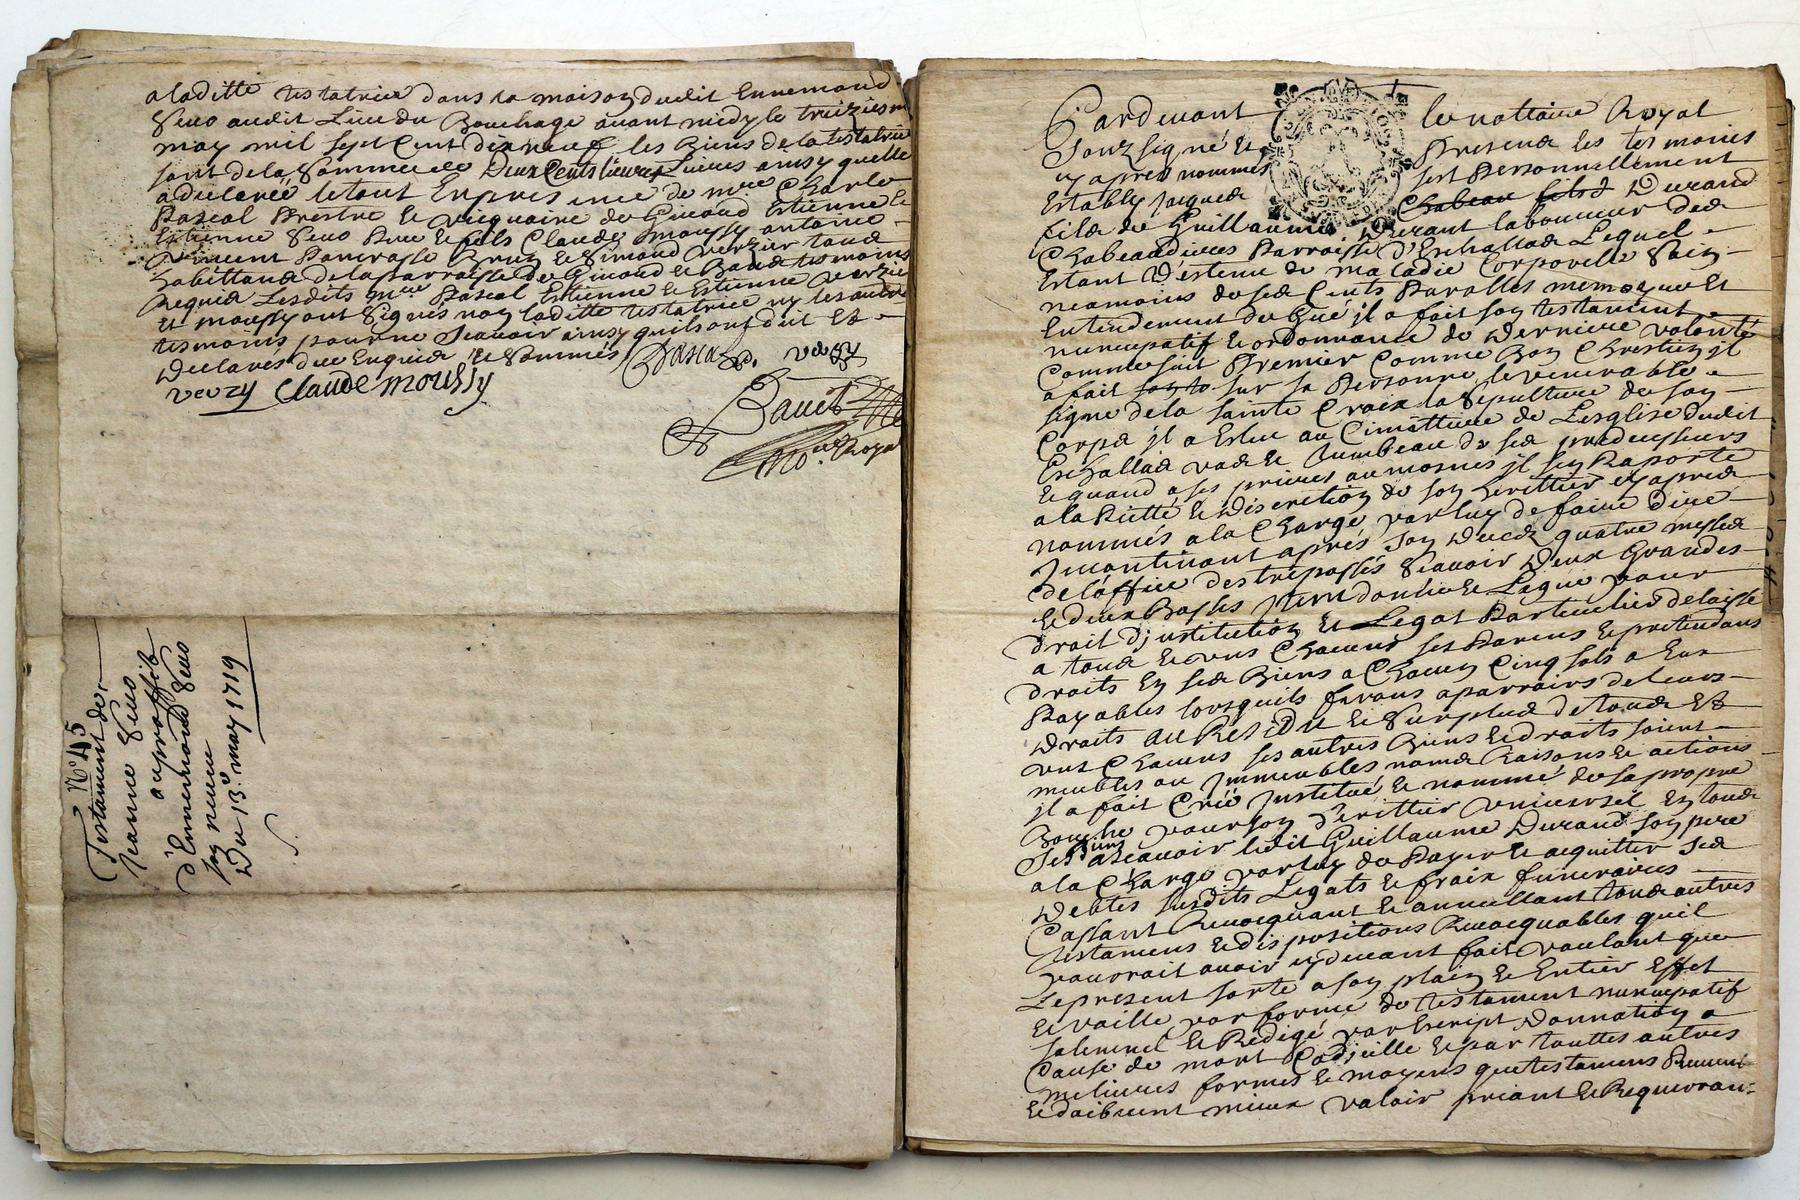 a laditte testatrice dans la maison dudit Ennemond
Seuo audit Lieu du Bouchage auant midy le treiziesm
may mil sept Cent dix neuf les Biens de la testatrice
sont de la Somme de Deux Cents liures Liures ainsy quelle
a declaree le tout En presence de mre Charle
Pascal Prestre & vicquaire de Giuaud Estienne &
Estienne Seuo Pere & fils Claude moussy antoine
vincent Pancrasse & Simond verzier tous
habittans de la parroisse de Giuaud & tesmoins
Requis Lesdits mre Pascal Estienne & Estienne verzie
Et moussy ont Signés non laditte testatrice ny les autres
tesmoins pour ne Scauoir ainsy quils ont dit Et
Declarés de ce Enquis & Sommés Pascal
Claude moussy
Royal
N° 45
Testament de
Jeanne Seuo
au proffit
d'Ennemond Seuo
son neueu
Du 13e may 1719
Pardeuant le nottaire Royal
Souzsigné & Presens les tesmoins
cy apres nommés sest Personnellement
Estably Jacques Chabeau fils d Durand
fils de Guillaume Durant laboureur des
Parroisse D'Eschallas Lequel
Estant Destenu de maladie Corporelle Sain
neamoins de ses Cents Paralles memoyre Et
Entendement de Gré jl a fait son testament
nuncupatif & ordonnance de Derniere volonté
Comme suit Premier Comme Bon Chrestien jl
a fait sur sa Personne le venerable
signe de la Sainte Croix la Sepulture de son
Corps jl a Esleu au Cimettiere de Lesglise dudit
Eschallas & Tumbeau de ses predecesseurs
& quand a ses prieres aumosnes jl sen Raporte
a la Piette & Discretion de son heritier cy apres
nommés a la Charge par luy de faire dire
Jncontinant aprés son Deceds quatre messes
de l'office des trepassés Scauoir Deux Grandes
& deux Basses Jtem donne & Legue pour
droit d'jnstitution Et Legat Particulier delaisse
a tous & vns Chacuns ses Parens & pretendans
droits En ses Biens a Chacun Cinq sols a Eux
Payables lorsquils feront aparroirs de leurs
Droits au Residu & Surplus de tous Et
vns Chacuns ses autres Biens & droits soient
meubles ou Jmmeubles noms Raisons & actions
jl a fait Creé Justitué & nommé de sa propre
Bouche pour son heritier vniuersel En tous
Ses Biens Scauoir ledit Guillaume Durand son pere
a la Charge par luy de Payer & acquitter ses
Debtes susdits Legats & fraix funeraires
Cassant Reuocquant & annullant tous autres
testamens & dispositions Reuocquables quil
pouroit auoir cy deuant fait voulant que
Le present sorte a son plein & Entier Effet
& vaille par forme de testament nuncupatif
solemnel & Redigé par Escript Donnation a
Cause de mort Codicille & par touttes autres
melieures formes & moyens que testamens Peuuent
& doibuent mieux valoir priant & Requerran